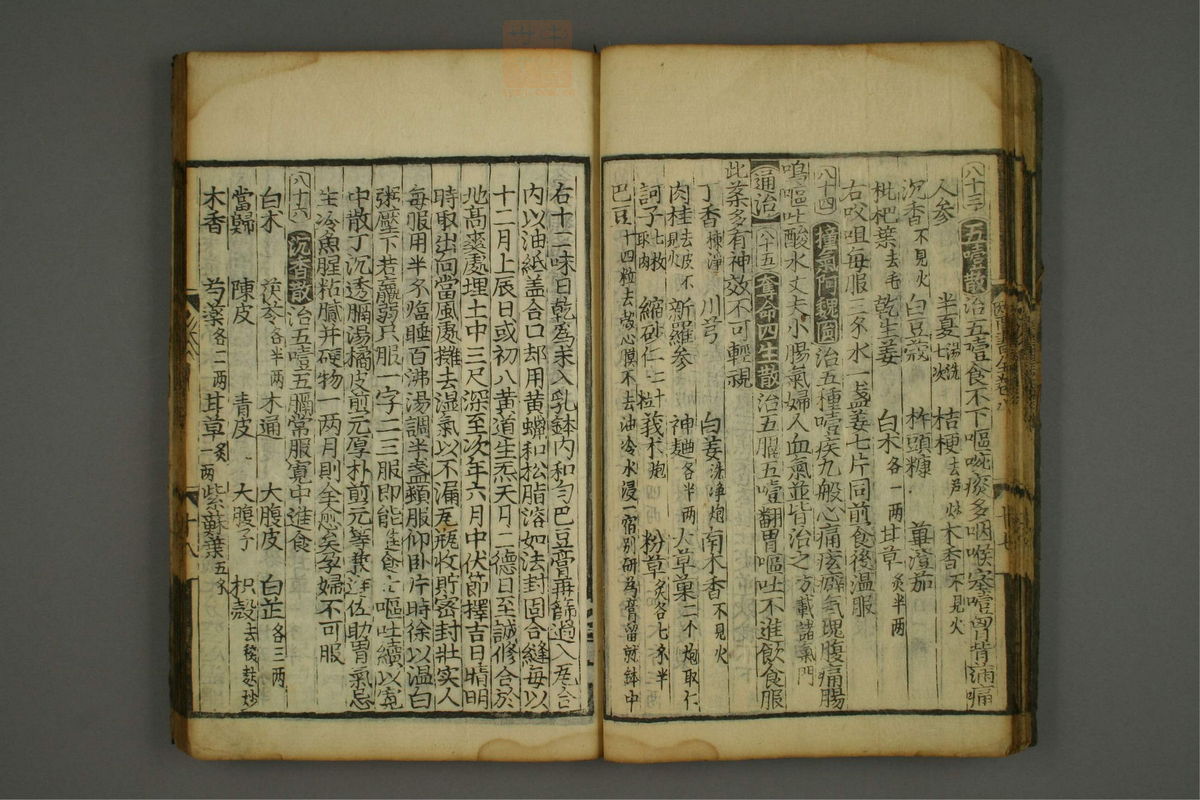 八十三 五噎散 治五噎食不下嘔啘痰多咽喉塞噎胷背滿痛
人參 半夏湯洗七次 桔梗去芦炒 木香不見火
沉香不見火 白豆蔻 杵頭糠 蓽澄茄
枇杷葉去毛 乾生姜 白术各一兩 甘草炙半兩
右㕮咀每服三錢水一盞姜七片同煎食後温服
八十四 撞氣阿魏圓 治五種噎疾九般心痛痃癖氣塊腹痛腸
鳴嘔吐酸水丈夫小腸氣婦人血氣並皆治之方載諸氣門
通治 八十五 奪命四生散 治五膈五噎翻胃嘔吐不進飲食服
此藥多有神效不可輕視
丁香揀淨 川芎 白姜洗浄炮 南木香不見火
肉桂去皮不見火 新羅參 神麯各半兩 大草菓二个炮取仁
訶子七枚取肉 縮砂仁二十粒 莪朮炮 粉草炙各七錢半
巴豆十四粒去殼心膜不去油冷水浸一宿别研為膏留於鉢中
右十二味日乾為末入乳鉢内和勻巴豆膏再篩過入瓦合
内以油紙盖合口却用黄蠟和松脂溶如法封固合縫每以
十二月上辰日或初八黄道生炁天月二德日至誠修合於
地高爽處埋土中三尺深至次年六月中伏節擇吉日晴明
時取出向當風處攤去湿氣以不漏瓦瓶收貯密封壯實人
每服用半錢臨睡百沸湯調半盞頓服仰卧片時徐以温白
粥壓下若羸弱只服一字二三服即能進食止嘔吐續以寬
中散丁沉透膈湯橘皮煎元厚朴煎元等藥進佐助胃氣忌
生冷魚腥粘膩并硬物一兩月則全愈矣孕婦不可服
八十六 沉香散 治五噎五膈常服寬中進食
白术 茯苓各半兩 木通 大腹皮 白芷各三兩
當歸 陳皮 青皮 大腹子 枳殼去穰麩炒
木香 芍藥各二兩 甘草一兩炙 紫蘇葉五錢